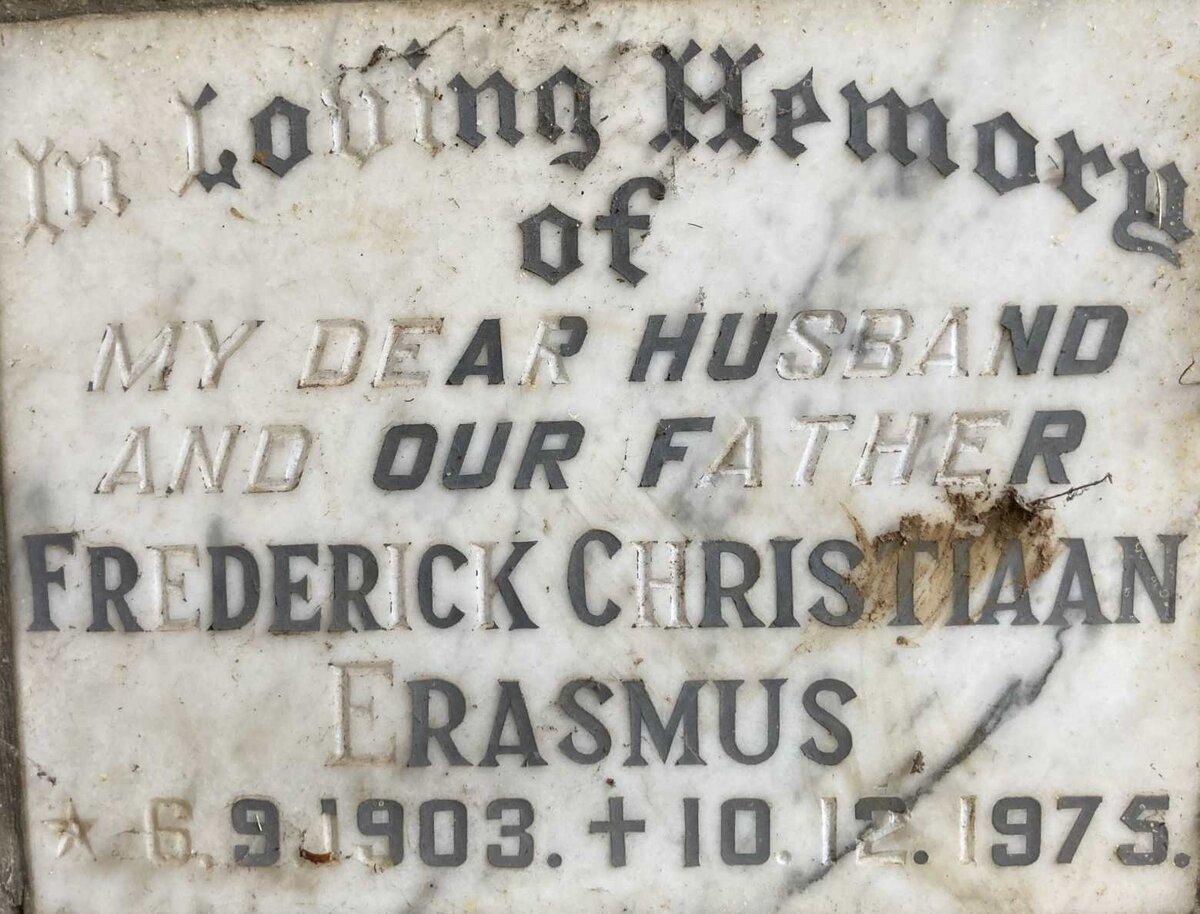 In Loving Memory
of
MY DEAR HUSBAND
AND OUR FATHER
FREDERICK CHRISTIAAN
ERASMUS
★ 6.9.1903. ✝ 10.12.1975.